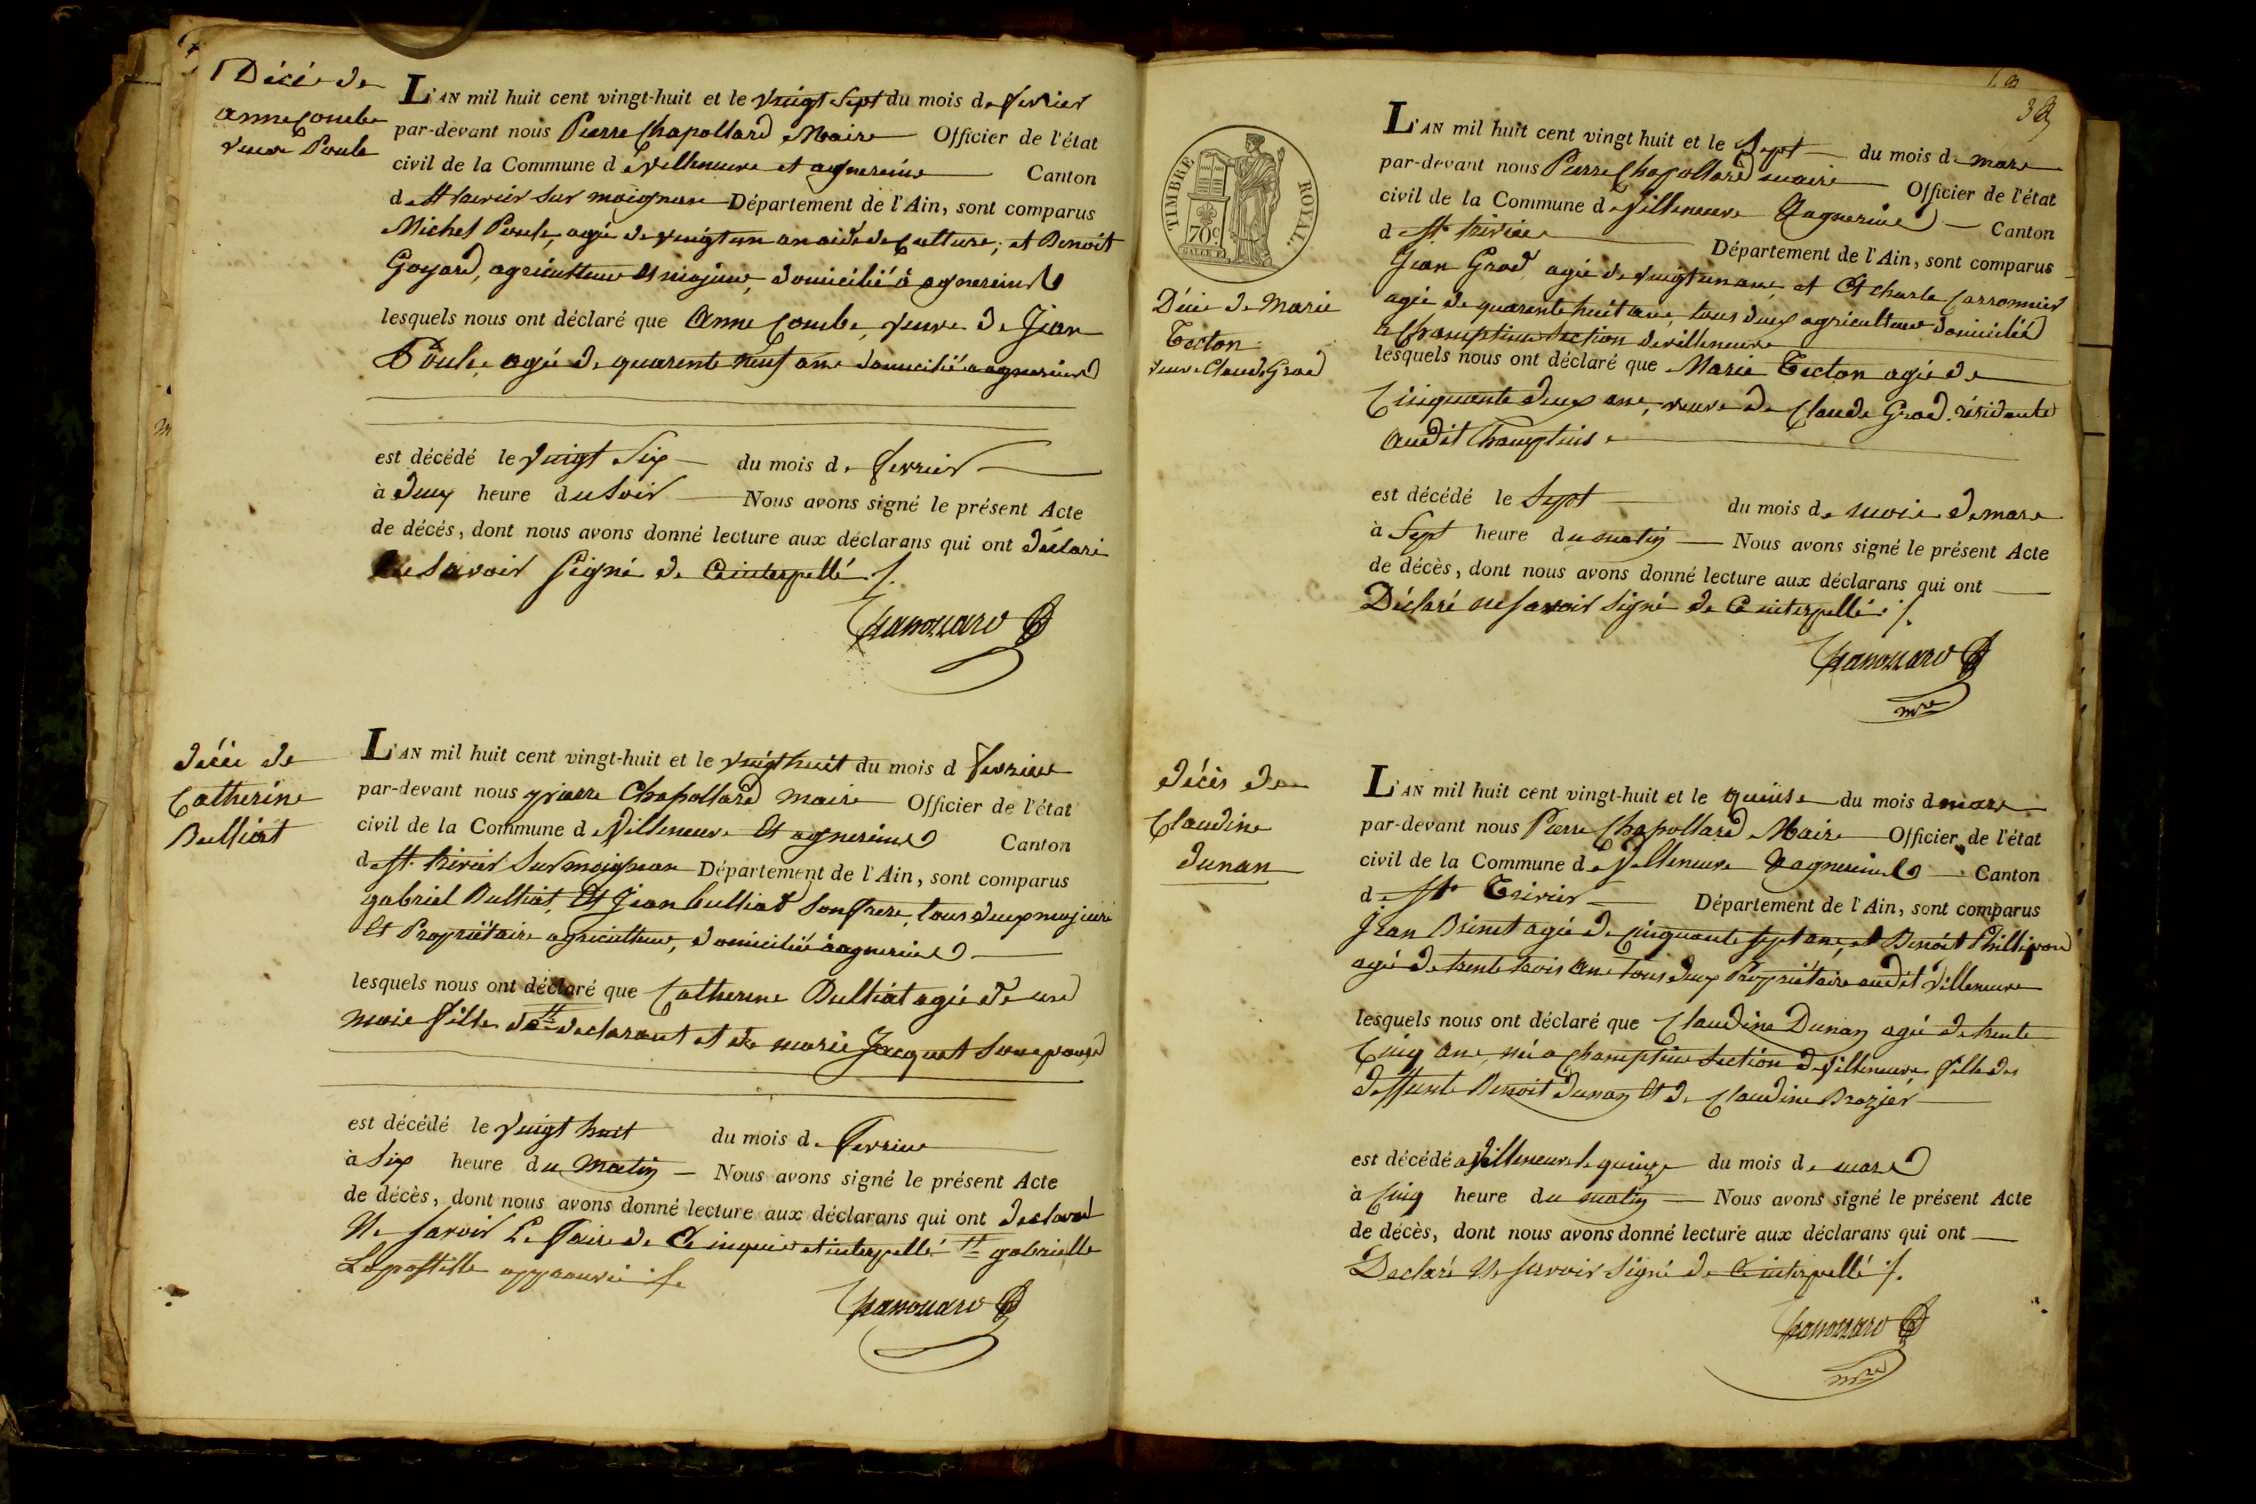 Décé de
anne Combe
veuve Poule
L'AN mil huit cent vingt-huit et le vingt sept du mois de fevrier
par-devant nous Pierre Chapollard Maire Officier de l'état
civil de la Commune de villeneuve et agnereins Canton
de St trivier sur moignan Département de l'Ain, sont comparus
Michel Poule, agé de vingt un an aide de Culture; et Benoit
Goyard, agriculteur et majeur, domicilié à agnereins
lesquels nous ont déclaré que anne Combe, veuve de Jean
Poule, agée de quarente neuf ans domicilié a agnereins
est décédé le vingt Six du mois de fevrier
à deux heure du Soir Nous avons signé le présent Acte
de décès, dont nous avons donné lecture aux déclarans qui ont déclaré
ne Savoir Signé de Ce interpellé ∫.
Chapollard
décée de
Catherine
Bulliat
L'AN mil huit cent vingt-huit et le vingt huit du mois d fevrier
par-devant nous pierre Chapollard maire Officier de l'état
civil de la Commune de villeneuve et agnereins Canton
de St. trivier Sur moignan Département de l'Ain, sont comparus
gabriel Bulliat, et Jean bulliat Son frere, tous deux majeurs
et Propriétaire agriculteur, domicilié à agnereins
lesquels nous ont déclaré que Catherine Bulliat agée de un
mois fille de declarant et de marie Jacquet Son epouse
est décédé le vingt huit du mois de fevrier
à Six heure du matin Nous avons signé le présent Acte
de décès, dont nous avons donné lecture aux déclarans qui ont declaré
Ne Savoir Le faire de Ce inquie et interpellé gabrielle
L'apostille approuvé ∫.
Chapollard
38
TIMBRE ROYAL.
70c
Décé de Marie
Tecton
veuve Claude Gras
L'AN mil huit cent vingt huit et le Sept du mois de mars
par-devant nous Pierre Chapollard maire Officier de l'état
civil de la Commune de villeneuve & agnereins Canton
de St. trivier Département de l'Ain, sont comparus
Jean Gras agé de vingt un ans, et Charle Carronnier
agée de quarente huit ans, tous deux agriculteurs domicilié
a Champtins Section de villeneuve
lesquels nous ont déclaré que Marie Tecton agée de
Cinquante deux ans, veuve de Claude Gras, résidante
audit Champtins
est décédé le Sept du mois de mois de mars
à Sept heure du matin Nous avons signé le présent Acte
de décès, dont nous avons donné lecture aux déclarans qui ont
Déclaré ne Savoir Signé de Ce interpellé. ∕.
Chapollard
mre
décès de
Claudine
dunan
L'AN mil huit cent vingt-huit et le quinse du mois de mars
par-devant nous Pierre Chapollard Maire Officier de l'état
civil de la Commune de villeneuve & agnereins Canton
de St. Trivier Département de l'Ain, sont comparus
Jean Brinet agé de Cinquante sept ans, et Benoit Phillipon
agé de trente trois ans tous deux Propriétaire audit villeneuve
lesquels nous ont déclaré que Claudine Dunan agée de trente
Cinq ans, née a Champtins Section de villeneuve fille de
deffunt Benoit Dunan et de Claudine Brazier
est décédé a villeneuve le quinze du mois de mars
à Cinq heure du matin Nous avons signé le présent Acte
de décès, dont nous avons donné lecture aux déclarans qui ont
Declaré Ne Savoir Signé de Ce interpellé ∕.
Chapollard
mre